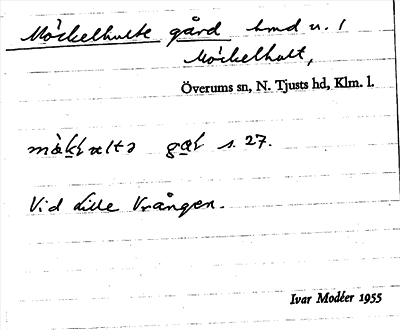 Möckelhulte gård hmd u. 1
Möckelhult,
Överums sn, N. Tjusts hd, Klm. l.
s. 27.
Vid Lille Vrången.
Ivar Modéer 1955